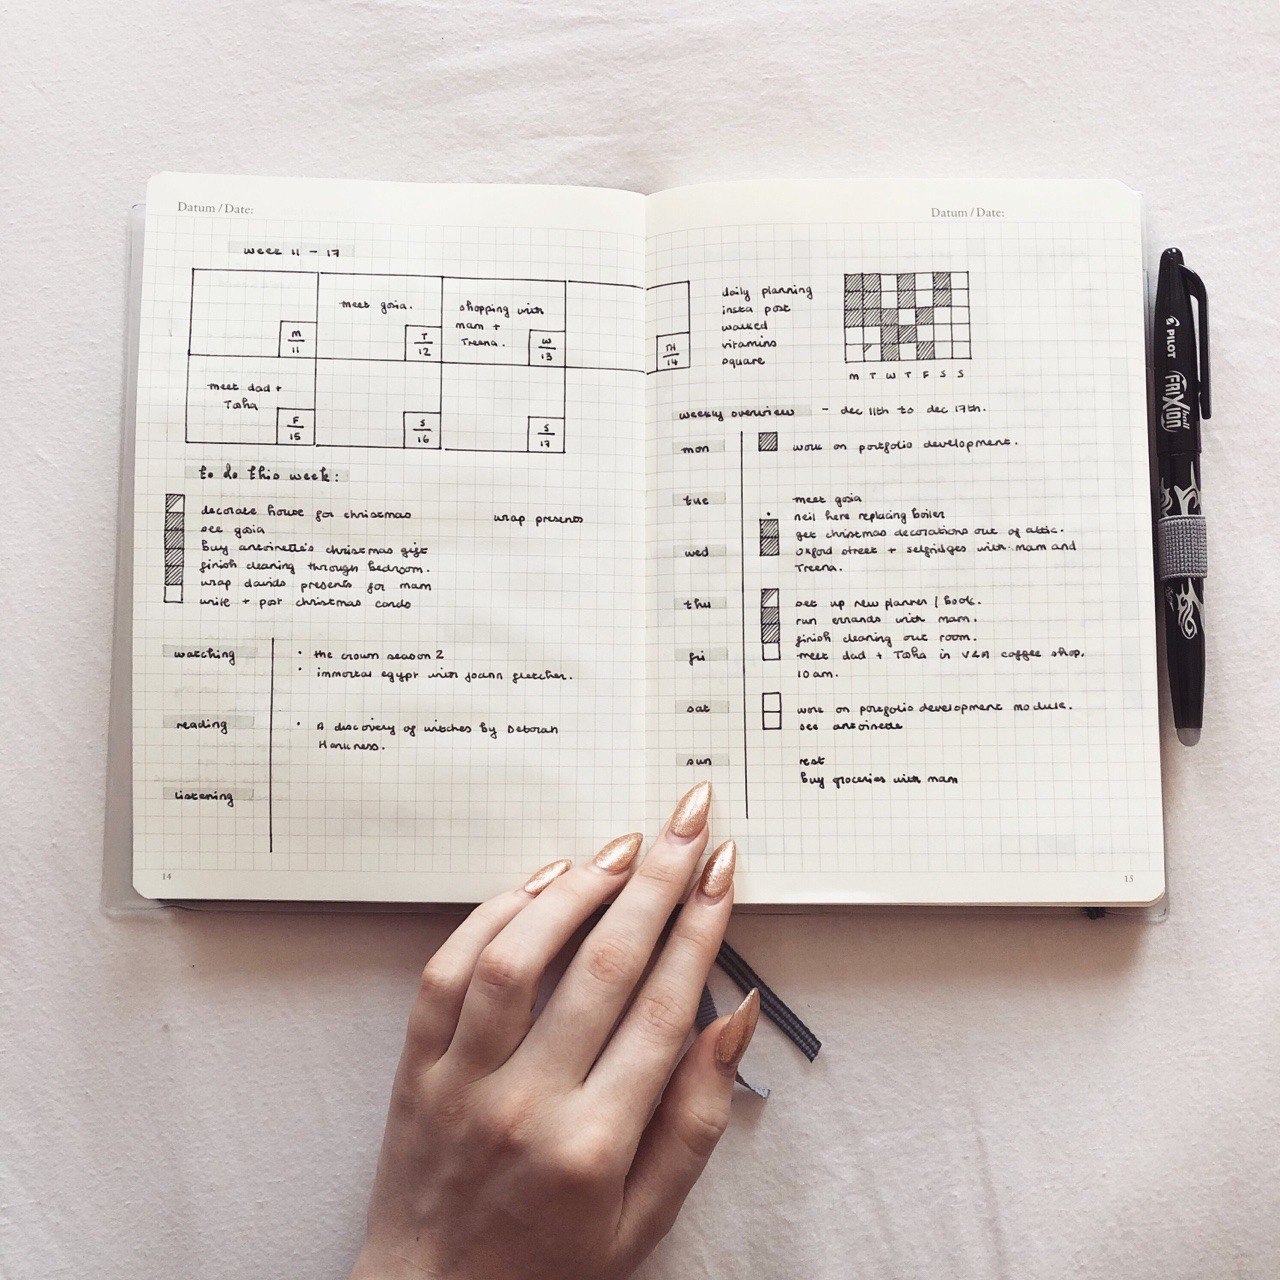 Datum / Date:
week 11 - 17
M
11
meet gosia.
T
12
shopping with
mam +
Treena.
W
13
TH
14
meet dad +
Tasha
F
15
S
16
S
17
to do this week:
decorate house for christmas
see gosia
buy antoinette's christmas gift
finish cleaning through bedroom.
wrap davids presents for mam
write + post christmas cards
wrap presents
watching
• the crown season 2
• immortal egypt with joann fletcher.
reading
• A discovery of witches by Deborah
Harkness.
listening
14
Datum / Date:
daily planning
insta post
walked
vitamins
square
M T W T F S S
weekly overview - dec 11th to dec 17th.
mon
work on portfolio development.
tue
meet gosia
• neil here replacing boiler
get christmas decorations out of attic.
wed
oxford street + selfridges with mam and
Treena.
thu
set up new planner / book.
run errands with mam.
finish cleaning out room.
fri
meet dad + Tasha in V&A coffee shop.
10 am.
sat
work on portfolio development module.
see antoinette
sun
rest
buy groceries with mam
15
PILOT
FRIXION